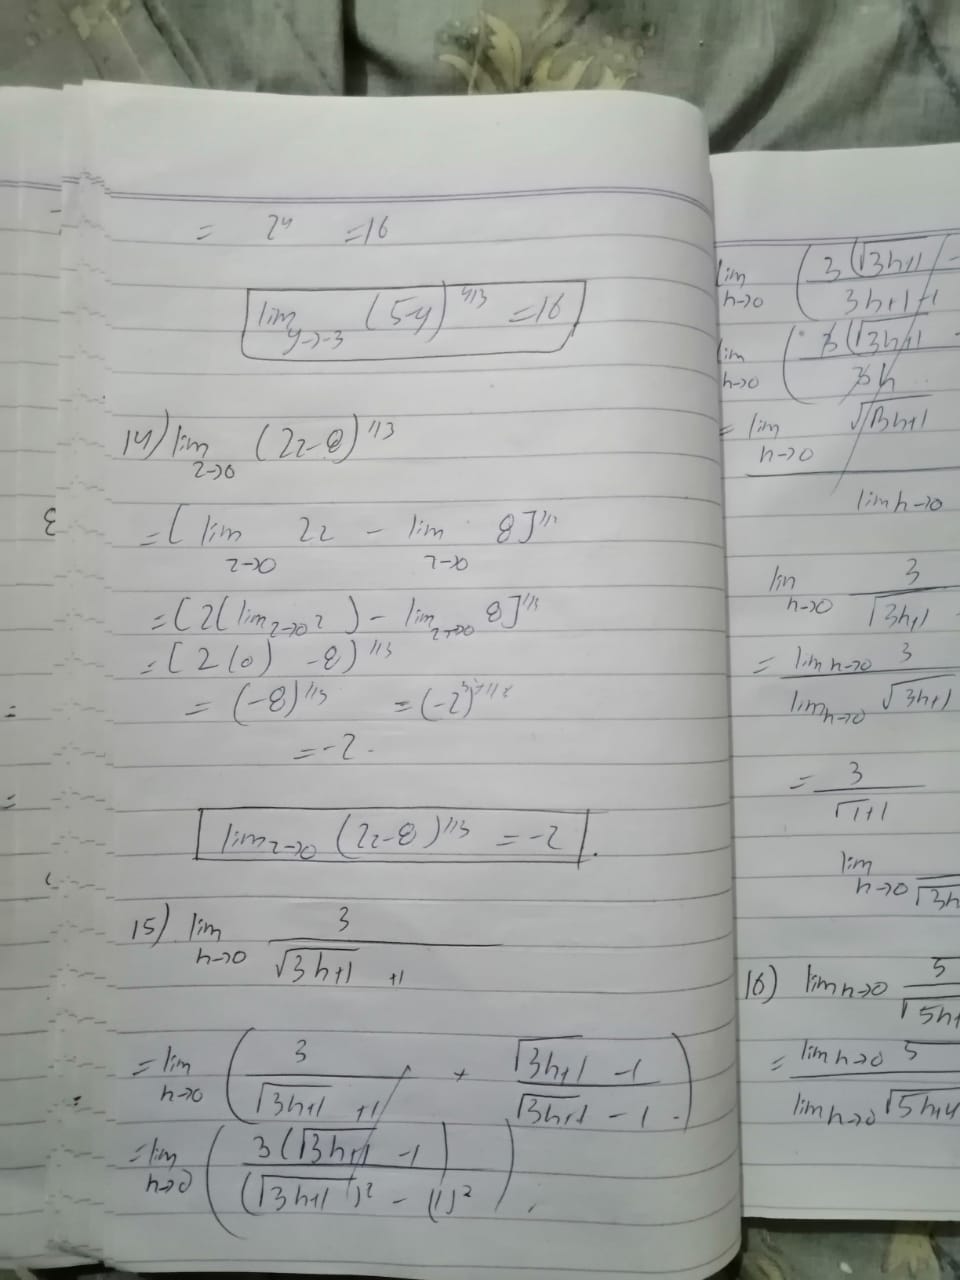 = 2⁴ =16
lim y->-3 (5-y)^4/3 =16
14) lim z->0 (2z-8)^1/3
= [ lim z->0 2z - lim z->0 8]^1/3
= [2(lim z->0 z ) - lim z->0 8]^1/3
= [2(0) -8)^1/3
= (-8)^1/3 = (-2)
= -2.
lim z->0 (2z-8)^1/3 = -2 .
15) lim h->0 3 / √3h+1 +1
= lim h->0 ( 3 / √3h+1 +1 × √3h+1 -1 / √3h+1 -1 )
= lim h->0 ( 3(√3h+1 -1) / (√3h+1)² - (1)² )
lim h->0 ( 3(√3h+1 - / 3h+1-1
lim h->0 ( 3(√3h+1 - / 3h
= lim h->0 √3h+1
lim h->0
lim h->0 3 / √3h+1
= lim h->0 3 / lim h->0 √3h+1
= 3 / √1+1
lim h->0 / √3h
16) lim h->0 5 / √5h+
= lim h->0 5 / lim h->0 √5h+4